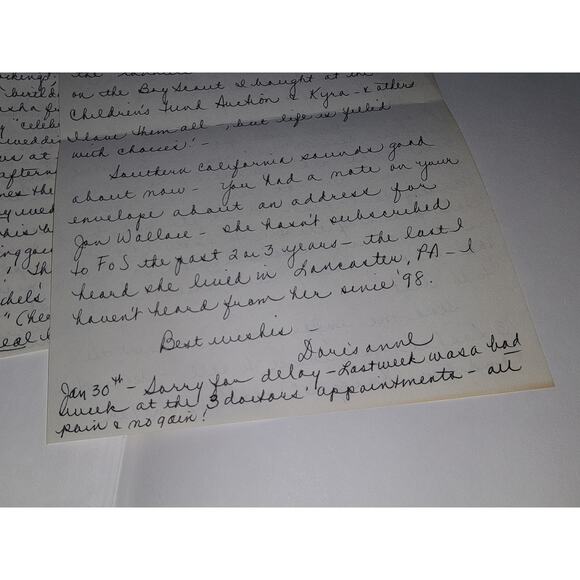 on the Boy Scout I bought at the
Children's Fund Auction & Kyra - & others
I love them all, but life is filled
with choices! -
Southern California sounds good
about now - you had a note on your
envelope about an address for
Jan Wallace - she hasn't subscribed
to FoS the past 2 or 3 years - the last I
heard she lived in Lancaster, PA - I
haven't heard from her since '98.
Best wishes -
Doris anne
Jan 30th - Sorry for delay - Last week was a bad
week at the 3 doctors' appointments - all
pain & no gain!
celeb
weddi
us at
aftern
nes the
his
ing goin
Th
chel's
" (he
eal